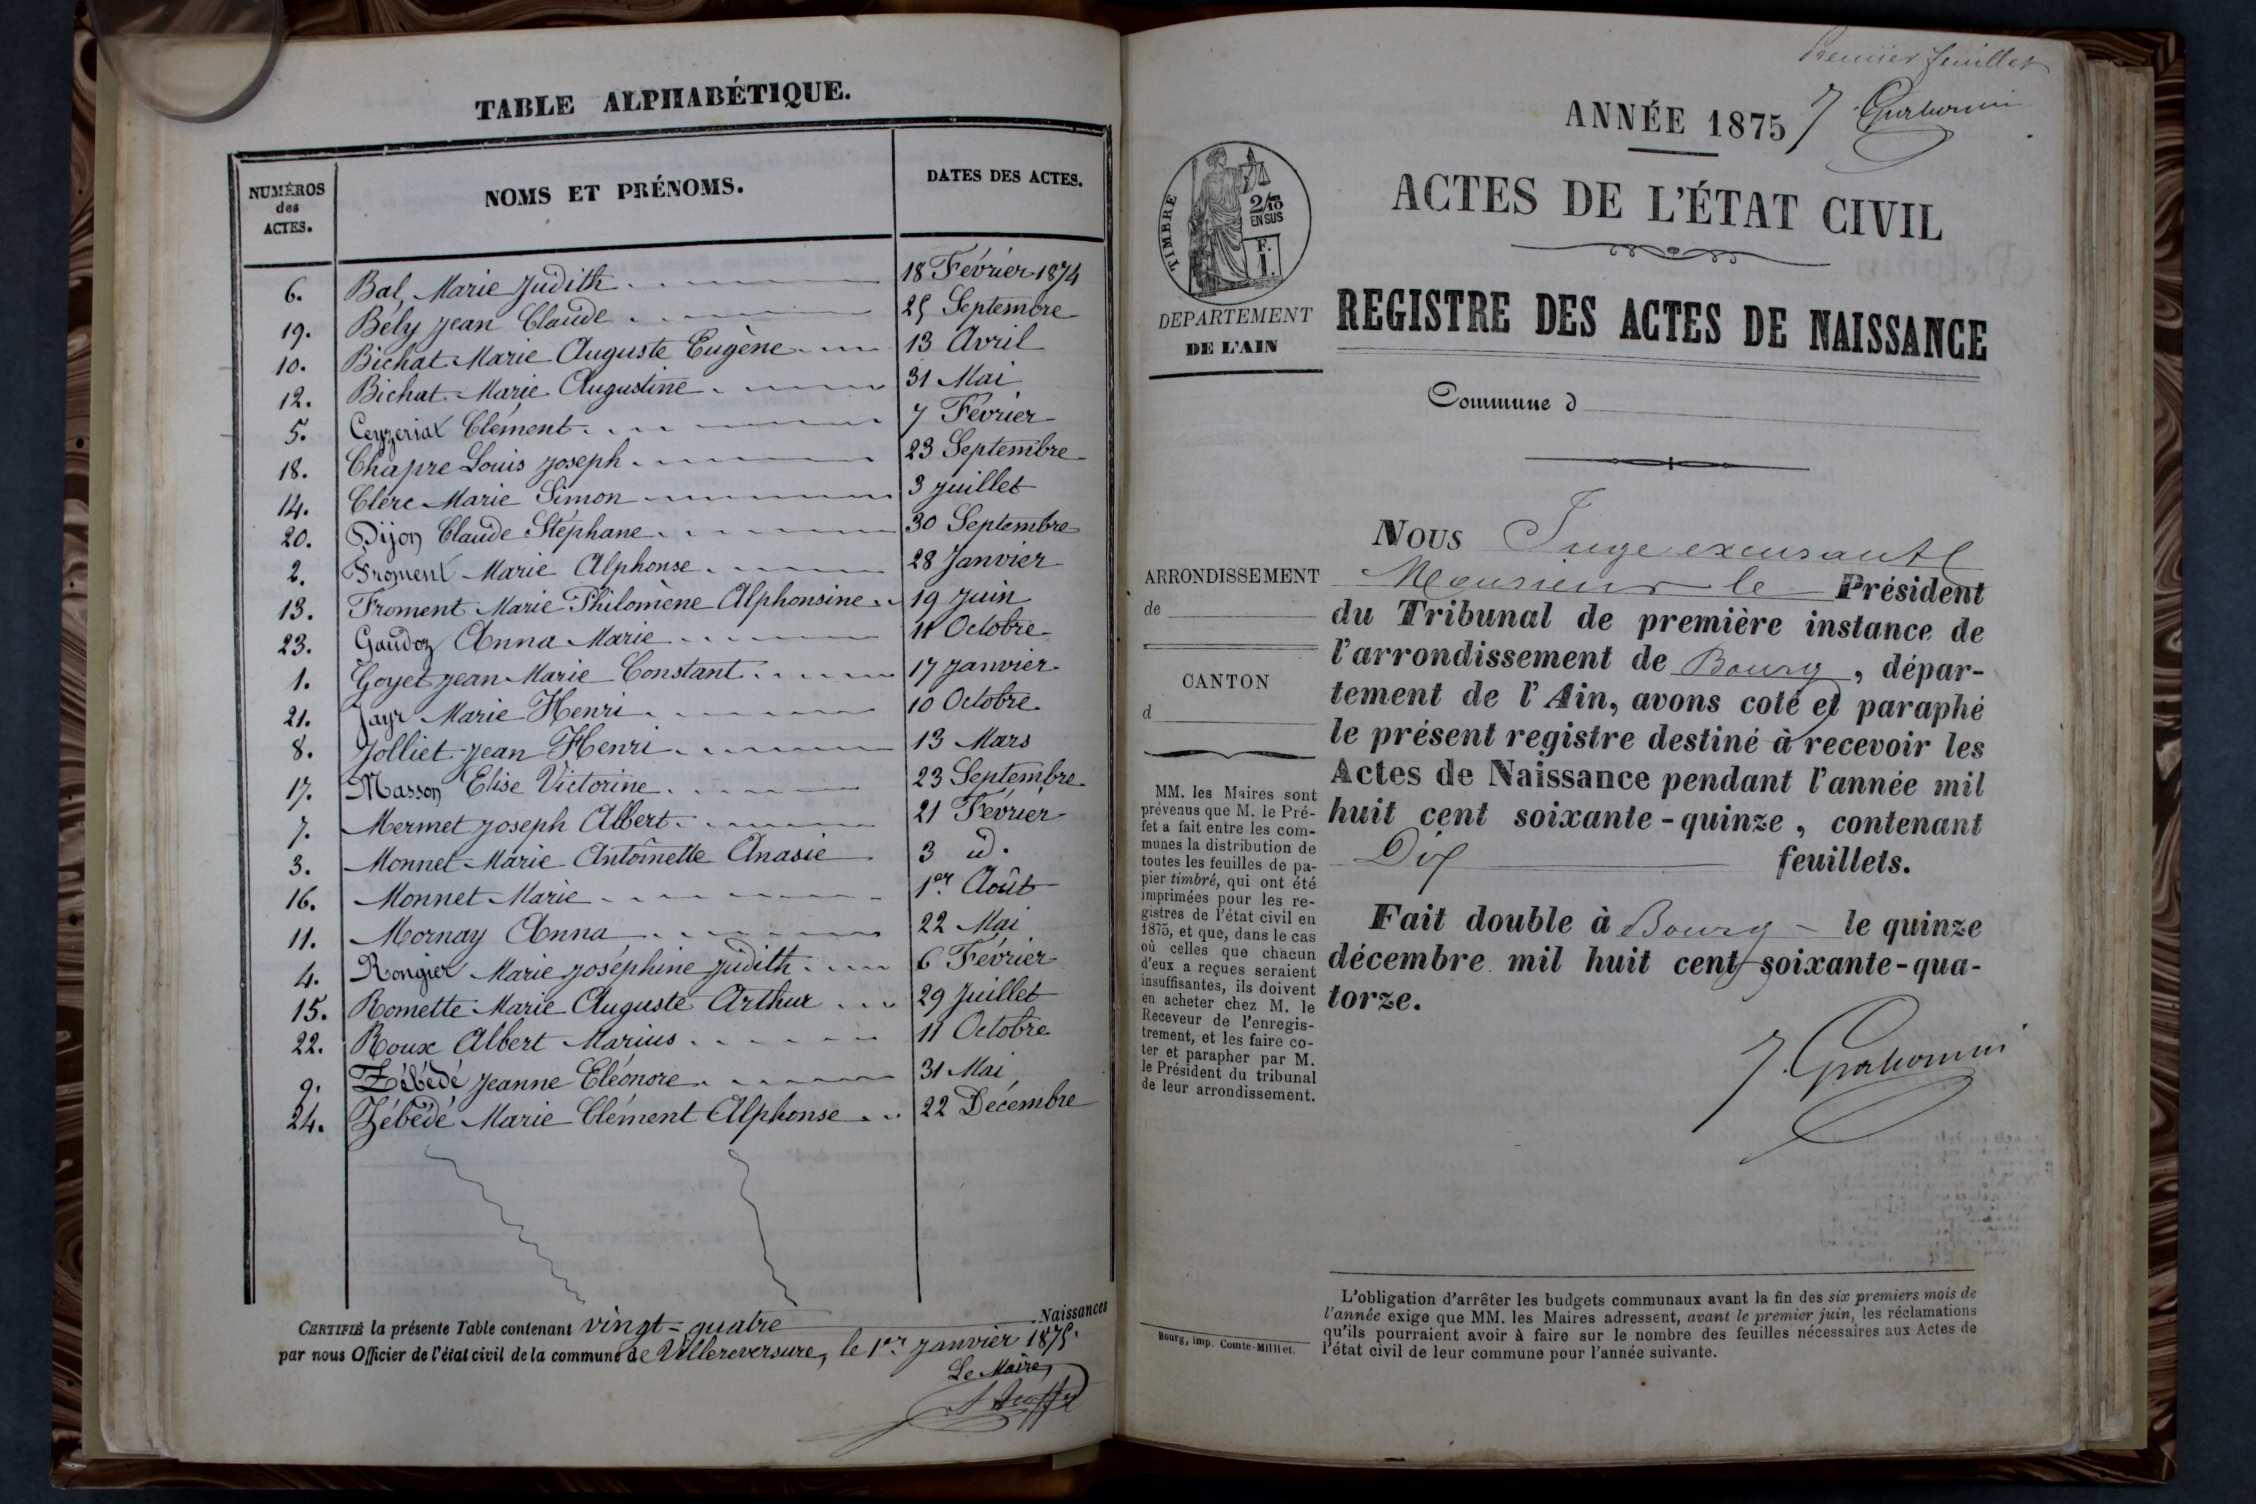 TABLE ALPHABÉTIQUE.
NUMÉROS des ACTES. NOMS ET PRÉNOMS. DATES DES ACTES.
6. Bal Marie Judith 18 Février 1874
19. Bély Jean Claude 25 Septembre
10. Bichat Marie Auguste Eugène 13 Avril
12. Bichat Marie Augustine 31 Mai
5. Ceyzeriat Clément 7 Février
18. Chapre Louis Joseph 23 Septembre
14. Clerc Marie Simon 3 Juillet
20. Dijon Claude Stéphane 30 Septembre
2. Froment Marie Alphonse 28 Janvier
13. Froment Marie Philomène Alphonsine 19 Juin
23. Gaudoz Anna Marie 11 Octobre
1. Goyet Jean Marie Constant 17 Janvier
21. Jayr Marie Henri 10 Octobre
8. Jolliet Jean Henri 13 Mars
17. Masson Elise Victorine 23 Septembre
7. Mermet Joseph Albert 21 Février
3. Monnet Marie Antoinette Anasie 3 id.
16. Monnet Marie 1er Août
11. Mornay Anna 22 Mai
4. Rongier Marie Joséphine Judith 6 Février
15. Romette Marie Auguste Arthur 29 Juillet
22. Roux Albert Marius 11 Octobre
9. Zébédé Jeanne Eléonore 31 Mai
24. Zébédé Marie Clément Alphonse 22 Décembre
CERTIFIÉ la présente Table contenant vingt-quatre Naissances
par nous Officier de l'état civil de la commune de Villereversure, le 1er Janvier 1875.
Le Maire,
Premier feuillet
ANNÉE 1875
ACTES DE L'ÉTAT CIVIL
TIMBRE
2/10
EN SUS
F.
1.
DÉPARTEMENT
DE L'AIN
REGISTRE DES ACTES DE NAISSANCE
Commune d
ARRONDISSEMENT
de
CANTON
d
MM. les Maires sont
prévenus que M. le Pré-
fet a fait entre les com-
munes la distribution de
toutes les feuilles de pa-
pier timbré, qui ont été
imprimées pour les re-
gistres de l'état civil en
1875, et que, dans le cas
où celles que chacun
d'eux a reçues seraient
insuffisantes, ils doivent
en acheter chez M. le
Receveur de l'enregis-
trement, et les faire co-
ter et parapher par M.
le Président du tribunal
de leur arrondissement.
Bourg, imp. Comte-Milliet.
NOUS Juge excusant
Monsieur le Président
du Tribunal de première instance de
l'arrondissement de Bourg, dépar-
tement de l'Ain, avons coté et paraphé
le présent registre destiné à recevoir les
Actes de Naissance pendant l'année mil
huit cent soixante-quinze, contenant
Dix feuillets.
Fait double à Bourg le quinze
décembre mil huit cent soixante-qua-
torze.
L'obligation d'arrêter les budgets communaux avant la fin des six premiers mois de
l'année exige que MM. les Maires adressent, avant le premier juin, les réclamations
qu'ils pourraient avoir à faire sur le nombre des feuilles nécessaires aux Actes de
l'état civil de leur commune pour l'année suivante.